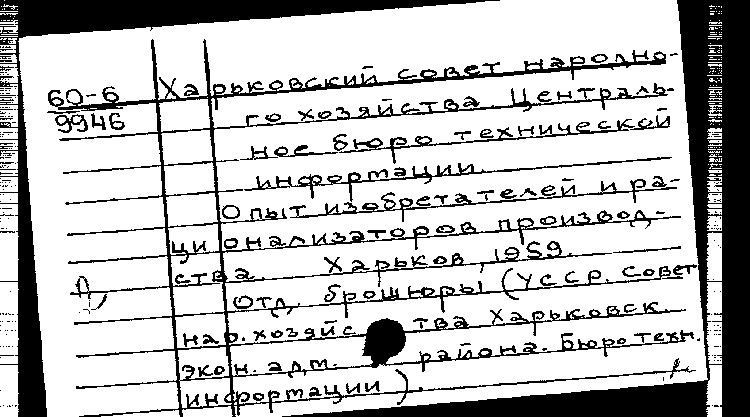 60-6
9946
Харьковский совет народно-
го хозяйства. Централь-
ное бюро технической
информации.
Опыт изобретателей и ра-
ционализаторов производ-
ства. Харьков, 1959.
Отд. брошюры (УССР. Совет
нар. хозяйства Харьковск.
экон. адм. района. Бюро техн.
информации).